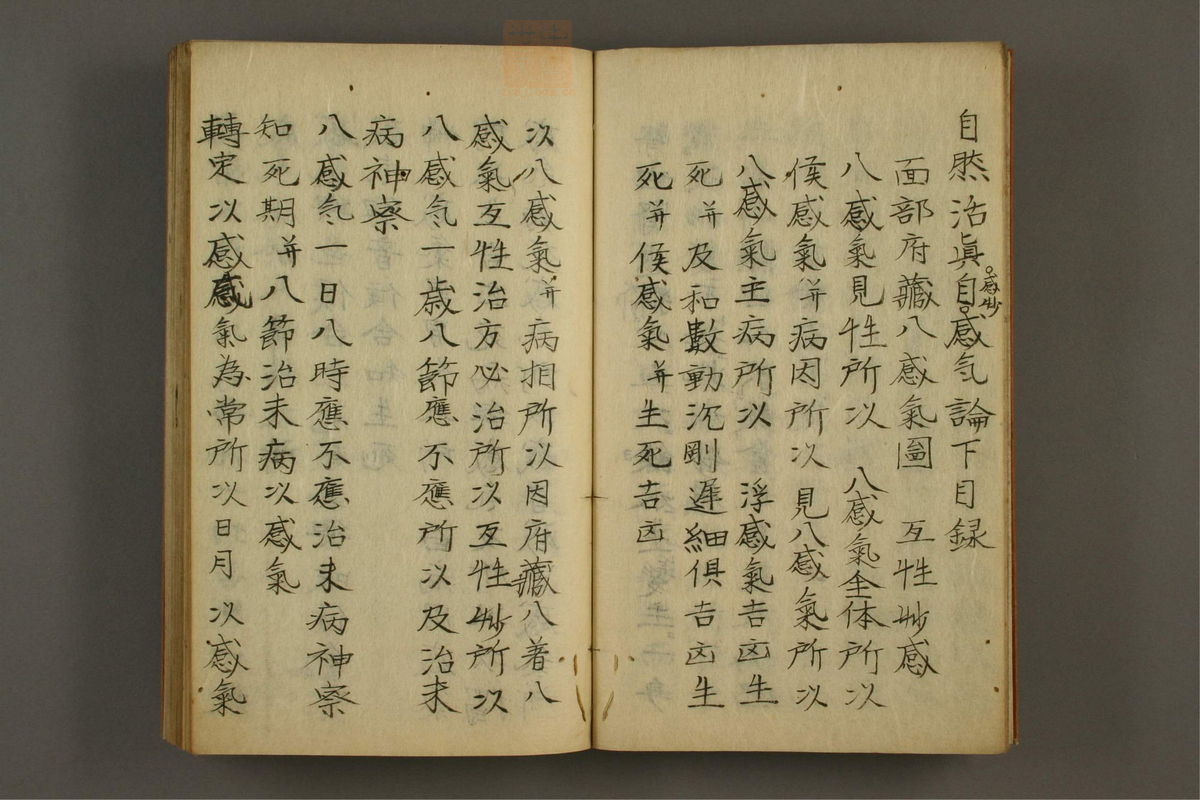 自然治眞自感气論下目録
感妙
面部府藏八感氣圖　互性妙感
八感氣見性所以　八感氣全体所以
候感氣并病因所以見八感氣所以
八感氣主病所以　浮感氣吉凶生
死并及和數動沉剛遲細倶吉凶生
死并候感氣并生死吉凶
以八感氣并病相所以因府藏八著八
感氣互性治方必治所以互性妙所以
八感气一歳八節應不應所以及治未
病神察
八感气一日八時應不應治未病神察
知死期并八節治未病以感氣
轉定以感感氣為常所以日月以感氣